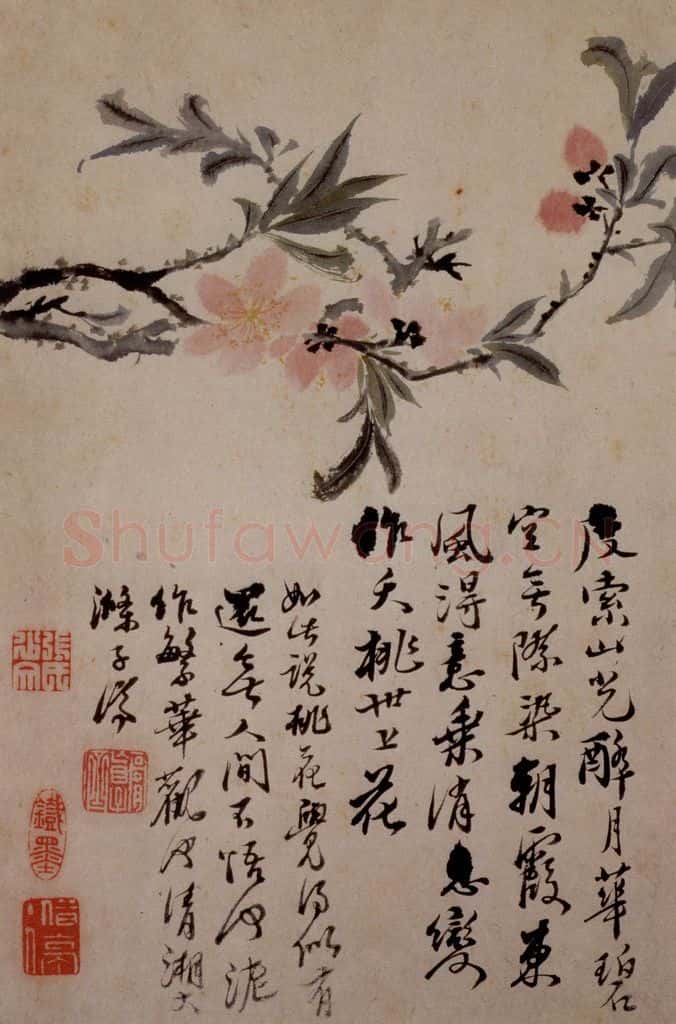 度索山光醉月華碧
空無際染朝霞東
風得意乘消息變
作夭桃世上花
如此說桃花覺得似有
還無人間不悟何泥
作繁華觀也清湘大
滌子濟
鐵墨
借亭
Shufawang.CN